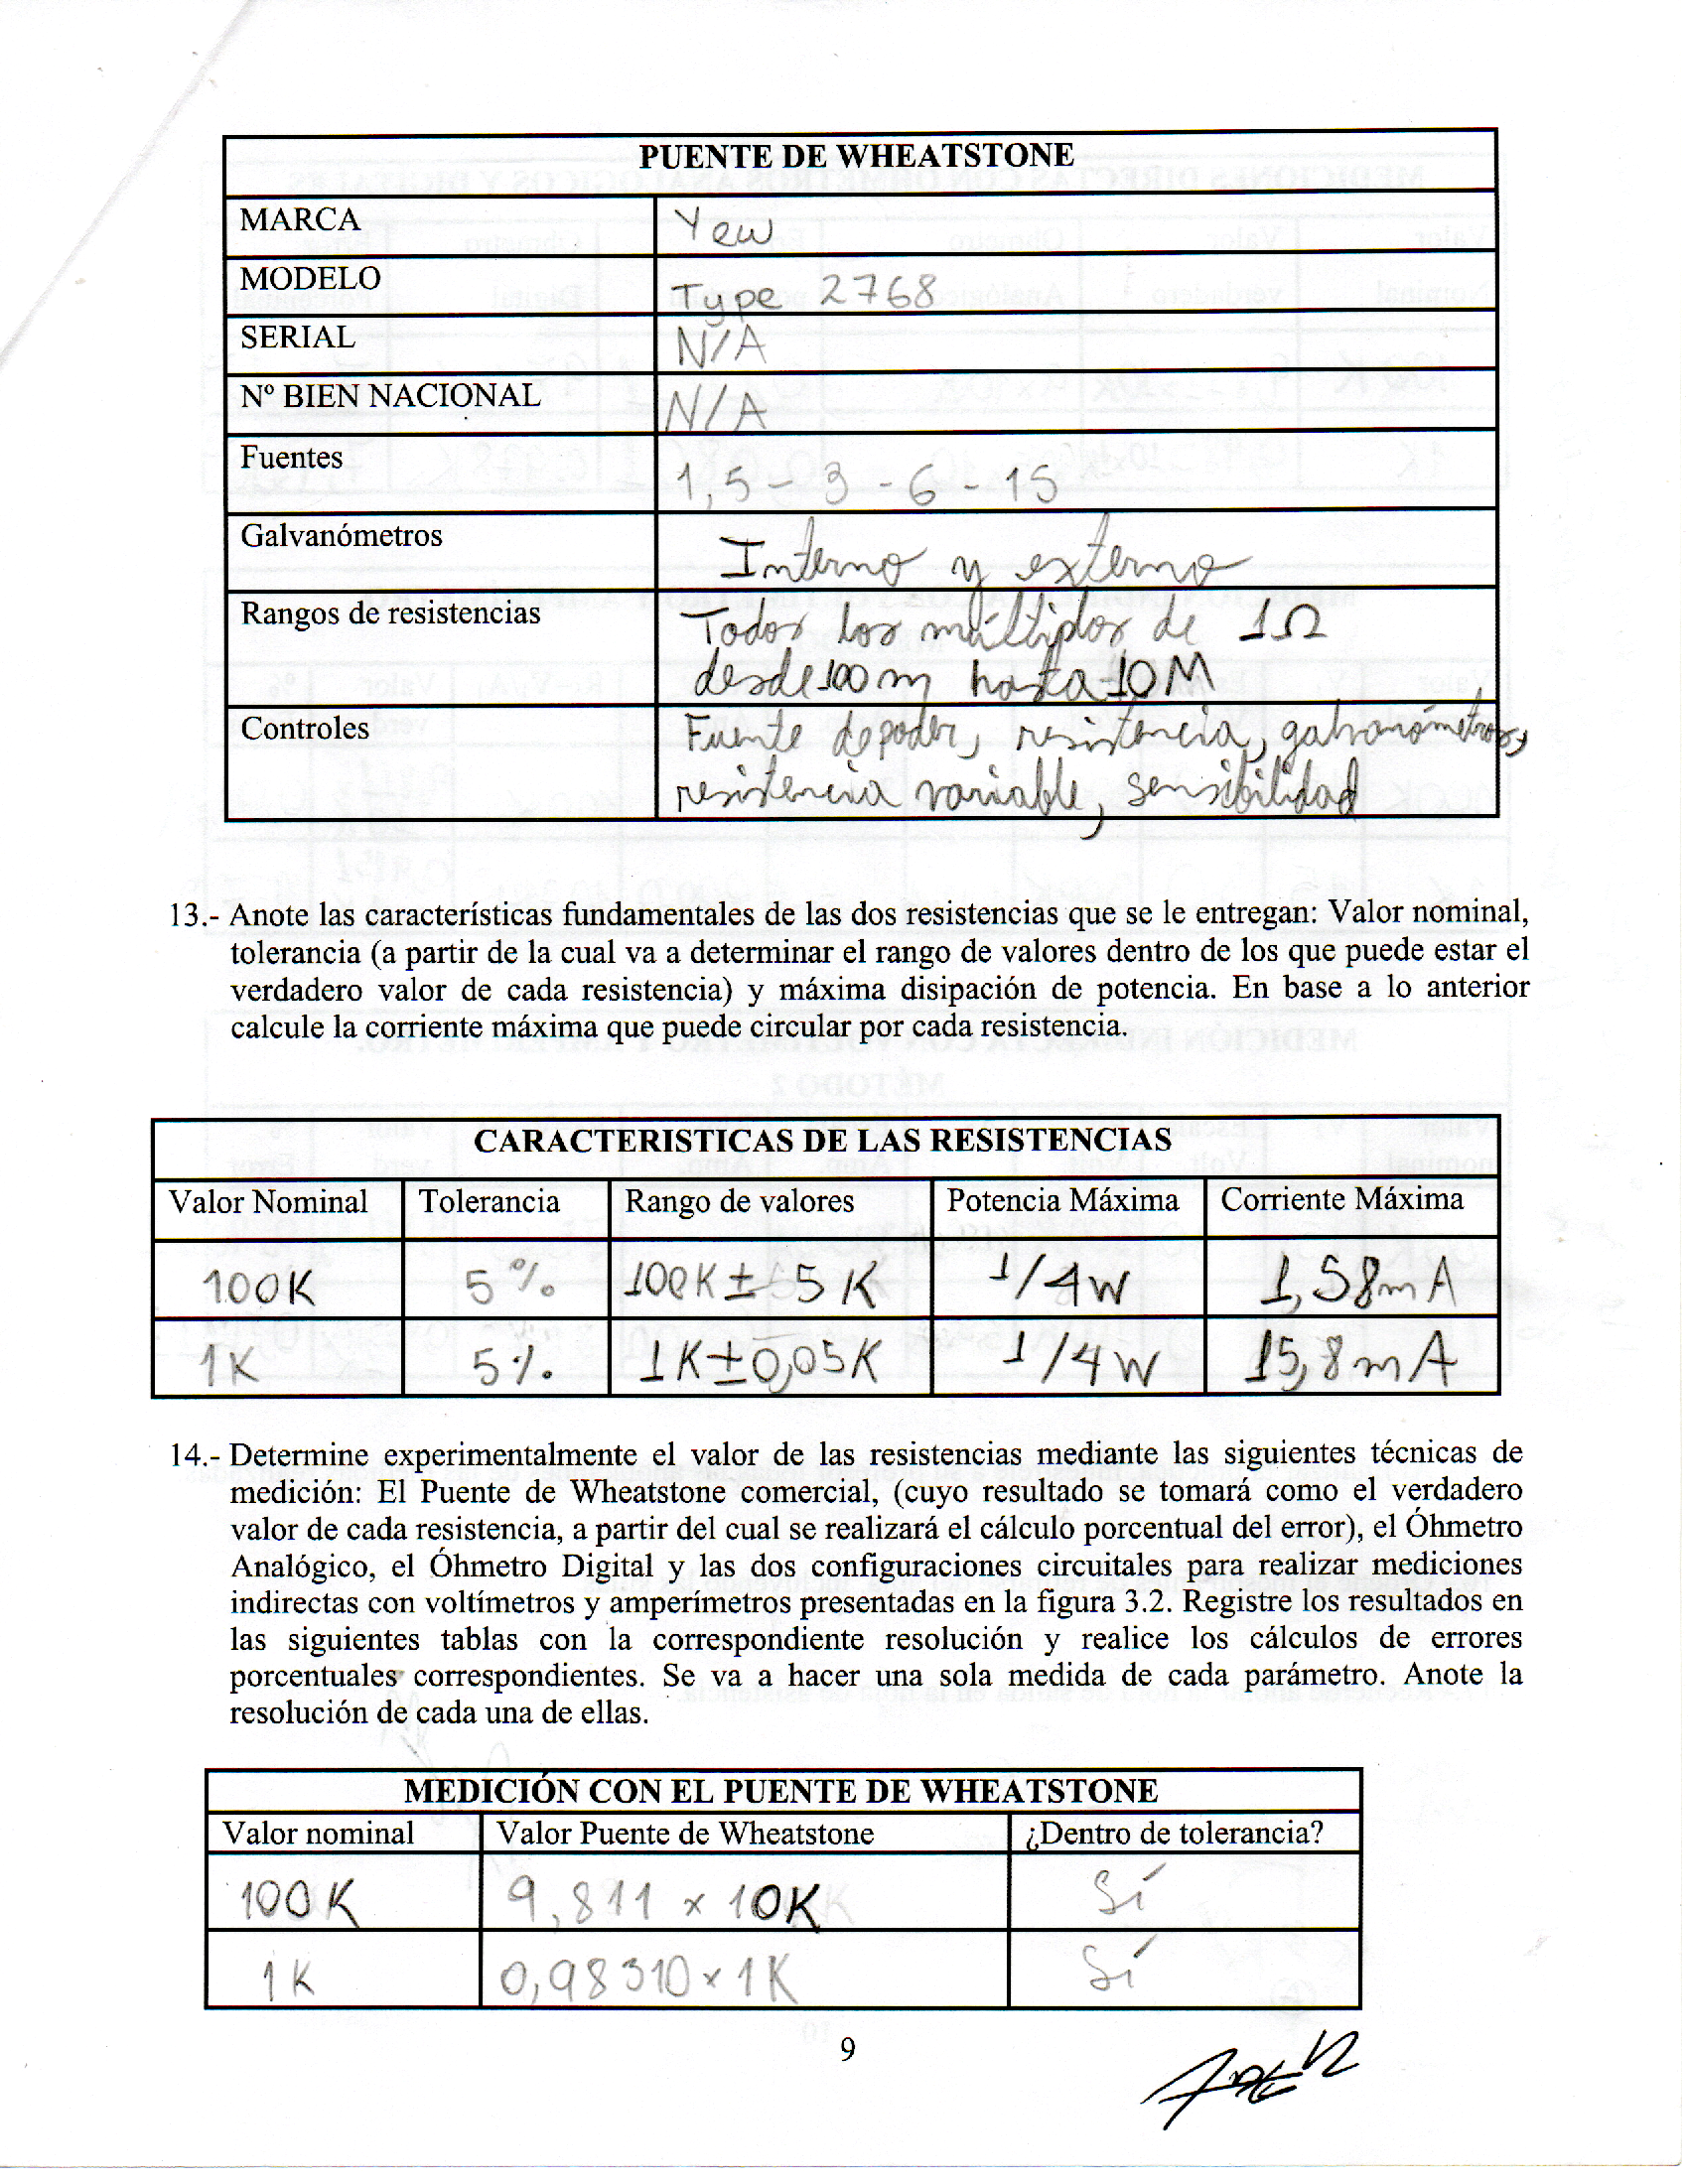 PUENTE DE WHEATSTONE
MARCA Yew
MODELO Type 2768
SERIAL N/A
Nº BIEN NACIONAL N/A
Fuentes 1,5 - 3 - 6 - 15
Galvanómetros Interno y externo
Rangos de resistencias Todos los múltiplos de 1Ω
desde 100m hasta 10M
Controles Fuente de poder, resistencia, galvanómetros,
resistencia variable, sensibilidad
13.- Anote las características fundamentales de las dos resistencias que se le entregan: Valor nominal,
tolerancia (a partir de la cual va a determinar el rango de valores dentro de los que puede estar el
verdadero valor de cada resistencia) y máxima disipación de potencia. En base a lo anterior
calcule la corriente máxima que puede circular por cada resistencia.
CARACTERISTICAS DE LAS RESISTENCIAS
Valor Nominal Tolerancia Rango de valores Potencia Máxima Corriente Máxima
100K 5% 100K ± 5K 1/4W 1,58mA
1K 5% 1K±0,05K 1/4W 15,8mA
14.- Determine experimentalmente el valor de las resistencias mediante las siguientes técnicas de
medición: El Puente de Wheatstone comercial, (cuyo resultado se tomará como el verdadero
valor de cada resistencia, a partir del cual se realizará el cálculo porcentual del error), el Óhmetro
Analógico, el Óhmetro Digital y las dos configuraciones circuitales para realizar mediciones
indirectas con voltímetros y amperímetros presentadas en la figura 3.2. Registre los resultados en
las siguientes tablas con la correspondiente resolución y realice los cálculos de errores
porcentuales correspondientes. Se va a hacer una sola medida de cada parámetro. Anote la
resolución de cada una de ellas.
MEDICIÓN CON EL PUENTE DE WHEATSTONE
Valor nominal Valor Puente de Wheatstone ¿Dentro de tolerancia?
100K 9,811 x 10K Sí
1K 0,98310 x 1K Sí
9